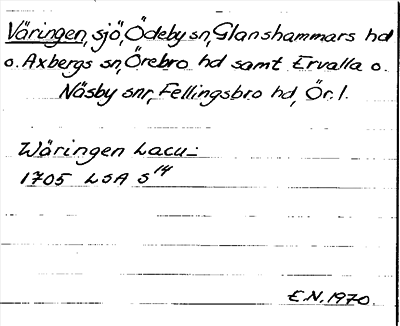 Väringen, sjö, Ödeby sn, Glanshammars hd
o. Axbergs sn, Örebro hd samt Ervalla o.
Näsby snr, Fellingsbro hd, Ör. l.
Wäringen Lacu-
1705 LSA S 14
E.N. 1970.